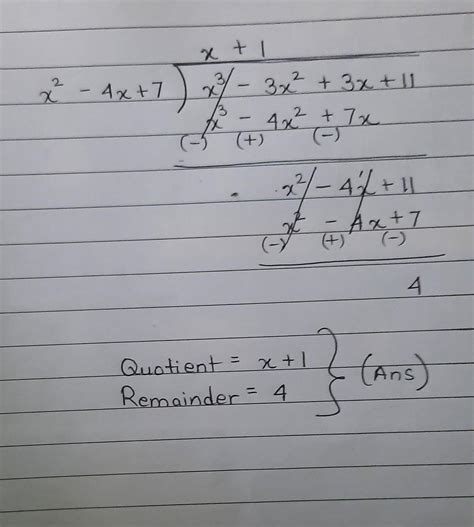 x + 1
x² - 4x + 7 ) x³ - 3x² + 3x + 11
x³ - 4x² + 7x
(-) (+) (-)
x² - 4x + 11
x² - 4x + 7
(-) (+) (-)
4
Quotient = x + 1
Remainder = 4 } (Ans)